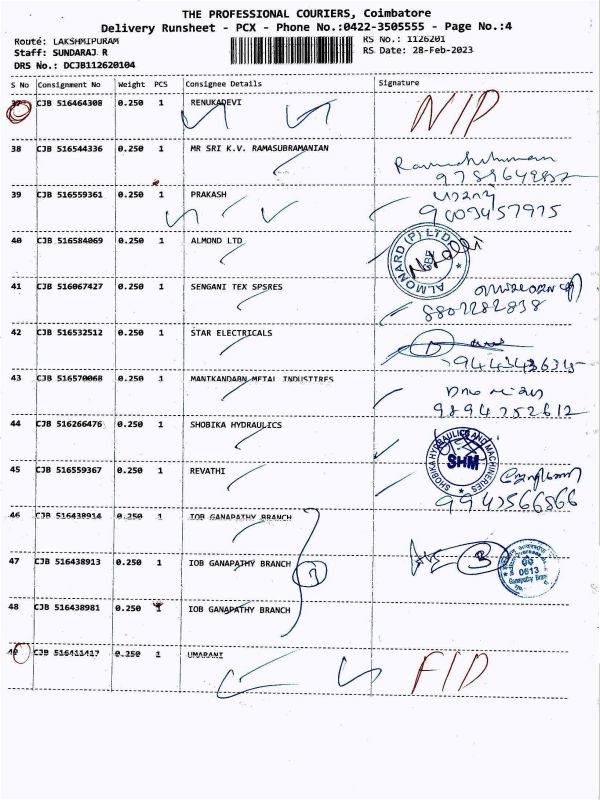 THE PROFESSIONAL COURIERS, Coimbatore
Delivery Runsheet - PCX - Phone No.:0422-3505555 - Page No.:4
Route: LAKSHMIPURAM
RS No.: 1126201
Staff: SUNDARAJ R
RS Date: 28-Feb-2023
DRS No.: DCJB112620104
S No Consignment No Weight PCS Consignee Details Signature
37 CJB 516464308 0.250 1 RENUKADEVI
38 CJB 516544336 0.250 1 MR SRI K.V. RAMASUBRAMANIAN
39 CJB 516559361 0.250 1 PRAKASH
9003457975
40 CJB 516584069 0.250 1 ALMOND LTD
ALMONARD (P) LTD
41 CJB 516067427 0.250 1 SENGANI TEX SPSRES
42 CJB 516532512 0.250 1 STAR ELECTRICALS
43 CJB 516570068 0.250 1 MANIKANDABN METAL INDUSTIRES
9894752612
44 CJB 516266476 0.250 1 SHOBIKA HYDRAULICS
SHOBIKA HYDRAULICS AND MACHINERIES
SHM
45 CJB 516559367 0.250 1 REVATHI
9943566866
46 CJB 516438914 0.250 1 IOB GANAPATHY BRANCH
47 CJB 516438913 0.250 1 IOB GANAPATHY BRANCH
0613
Ganapathy Bran
48 CJB 516438981 0.250 1 IOB GANAPATHY BRANCH
49 CJB 516411417 0.250 1 UMARANI